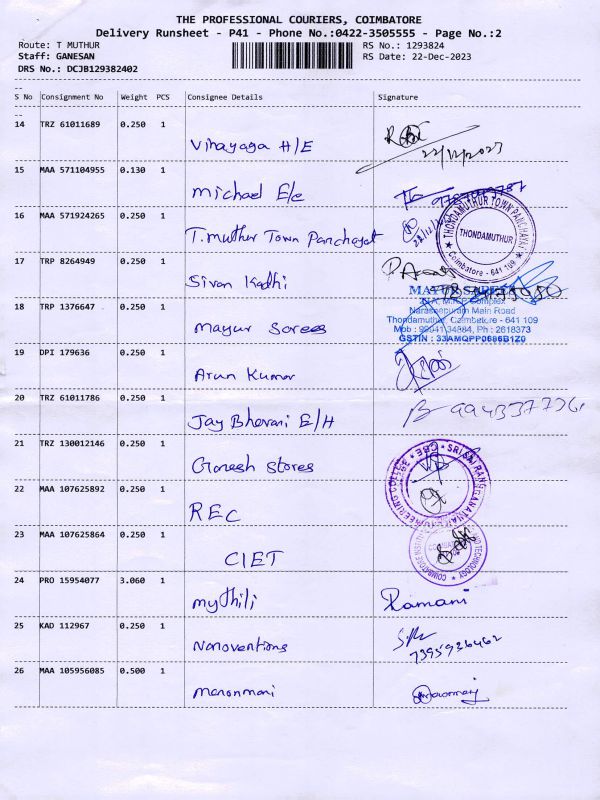 THE PROFESSIONAL COURIERS, COIMBATORE
Delivery Runsheet - P41 - Phone No.:0422-3505555 - Page No.:2
Route: T MUTHUR RS No.: 1293824
Staff: GANESAN RS Date: 22-Dec-2023
DRS No.: DCJB129382402
S No Consignment No Weight PCS Consignee Details Signature
14 TRZ 61011689 0.250 1 Vinayaga H/E
22/12/2023
15 MAA 571104955 0.130 1 Michael E/e
16 MAA 571924265 0.250 1 T. Muthur Town Panchayat
THONDAMUTHUR TOWN PANCHAYAT
THONDAMUTHUR
Coimbatore - 641 109
17 TRP 8264949 0.250 1 Sivan Kadhi
MAYUR SAREES
Naraseepuram Main Road
Thondamuthur, Coimbatore - 641 109
Mob : 99941 34884, Ph : 2618373
GSTIN : 33AMQPP0686B1Z0
18 TRP 1376647 0.250 1 Mayur Sarees
19 DPI 179636 0.250 1 Arun Kumar
20 TRZ 61011786 0.250 1 Jay Bhavani E/H
21 TRZ 130012146 0.250 1 Ganesh Stores
22 MAA 107625892 0.250 1 REC
23 MAA 107625864 0.250 1 CIET
24 PRO 15954077 3.060 1 mythili Ramani
25 KAD 112967 0.250 1 Nanoventions
7395936462
26 MAA 105956085 0.500 1 manonmani